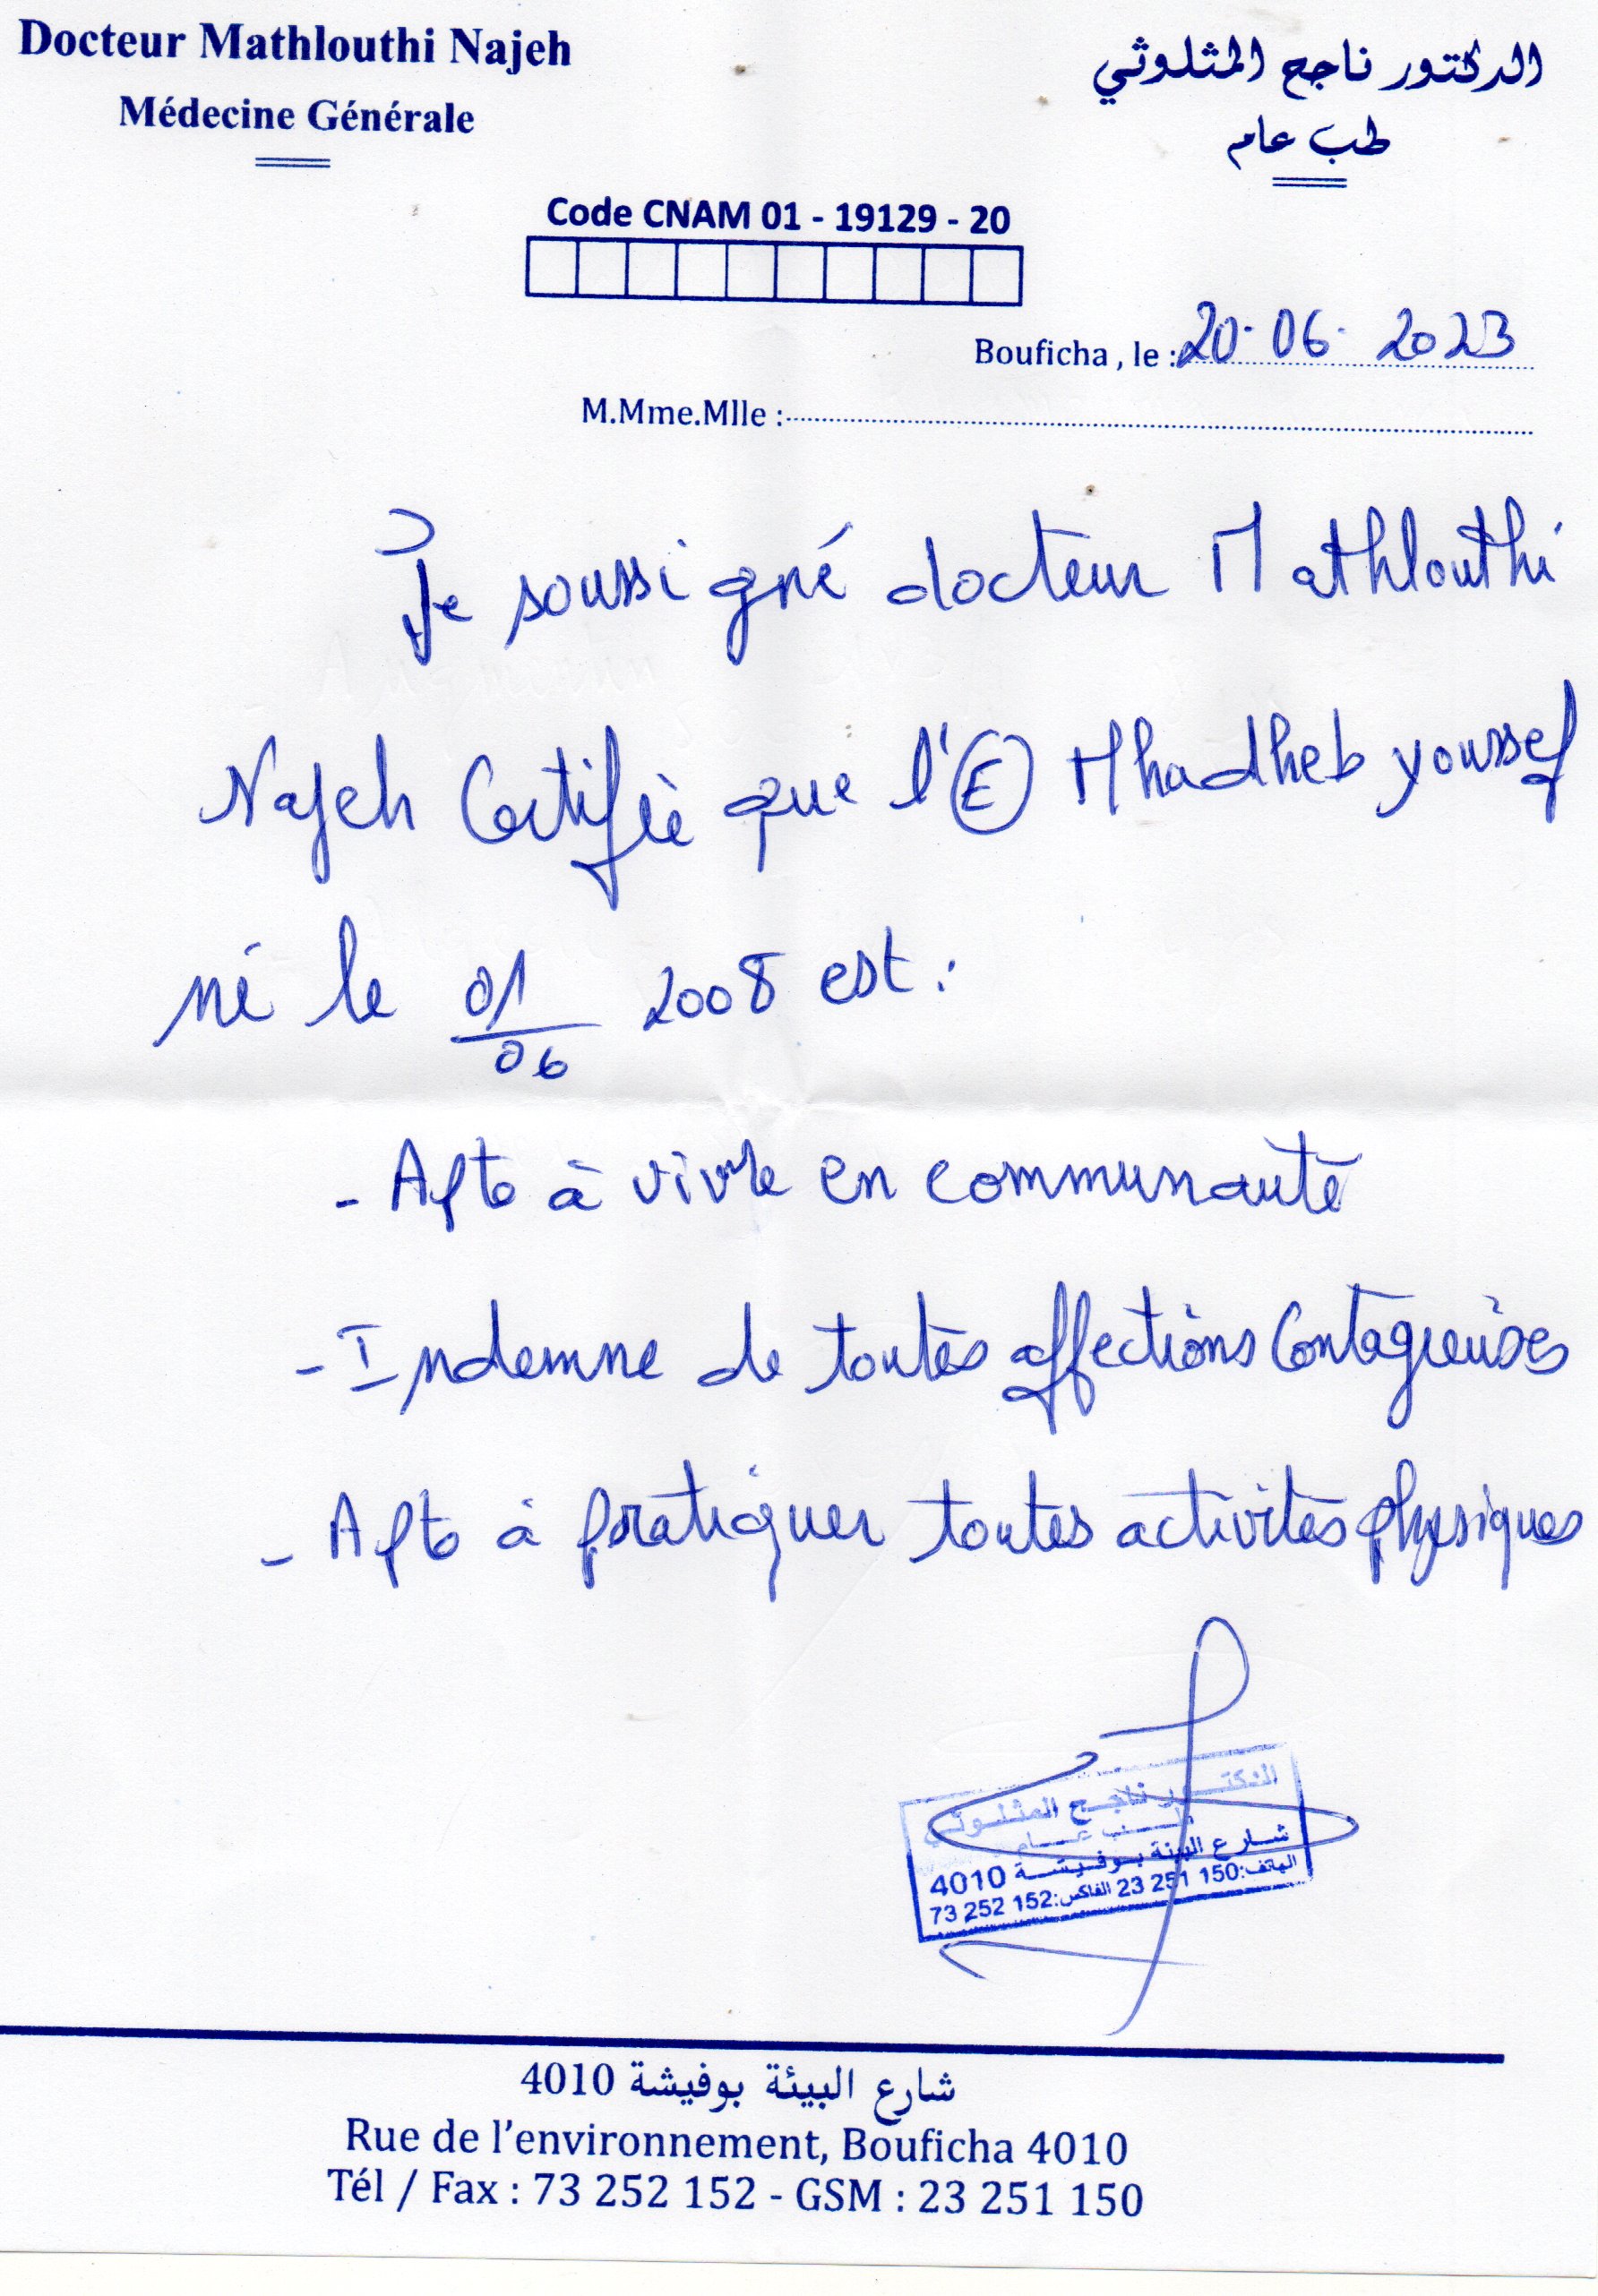 Docteur Mathlouthi Najeh
Médecine Générale
الدكتور ناجح المثلوثي
طب عام
Code CNAM 01 - 19129 - 20
Bouficha , le : 20. 06. 2023
M.Mme.Mlle :
Je soussigné docteur Mathlouthi
Najeh Certifie que l'(E) Mhadheb youssef
né le 01/06 2008 est :
- Apte à vivre en communauté
- Indemne de toutes affections Contagieuses
- Apte à pratiquer toutes activités physiques
الدكتور ناجح المثلوثي
طب عام
شارع البيئة بوفيشة 4010
الهاتف: 23 251 150 الفاكس: 73 252 152
شارع البيئة بوفيشة 4010
Rue de l'environnement, Bouficha 4010
Tél / Fax : 73 252 152 - GSM : 23 251 150